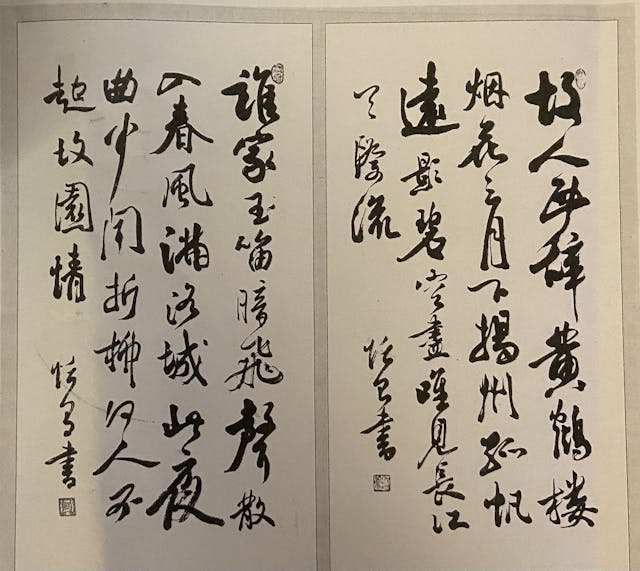 故人西辭黄鶴楼
烟花三月下揚州孤帆
遠影碧空盡唯見長江
天際流
書
誰家玉笛暗飛聲散
入春風滿洛城此夜
曲中聞折柳何人不
起故園情
書